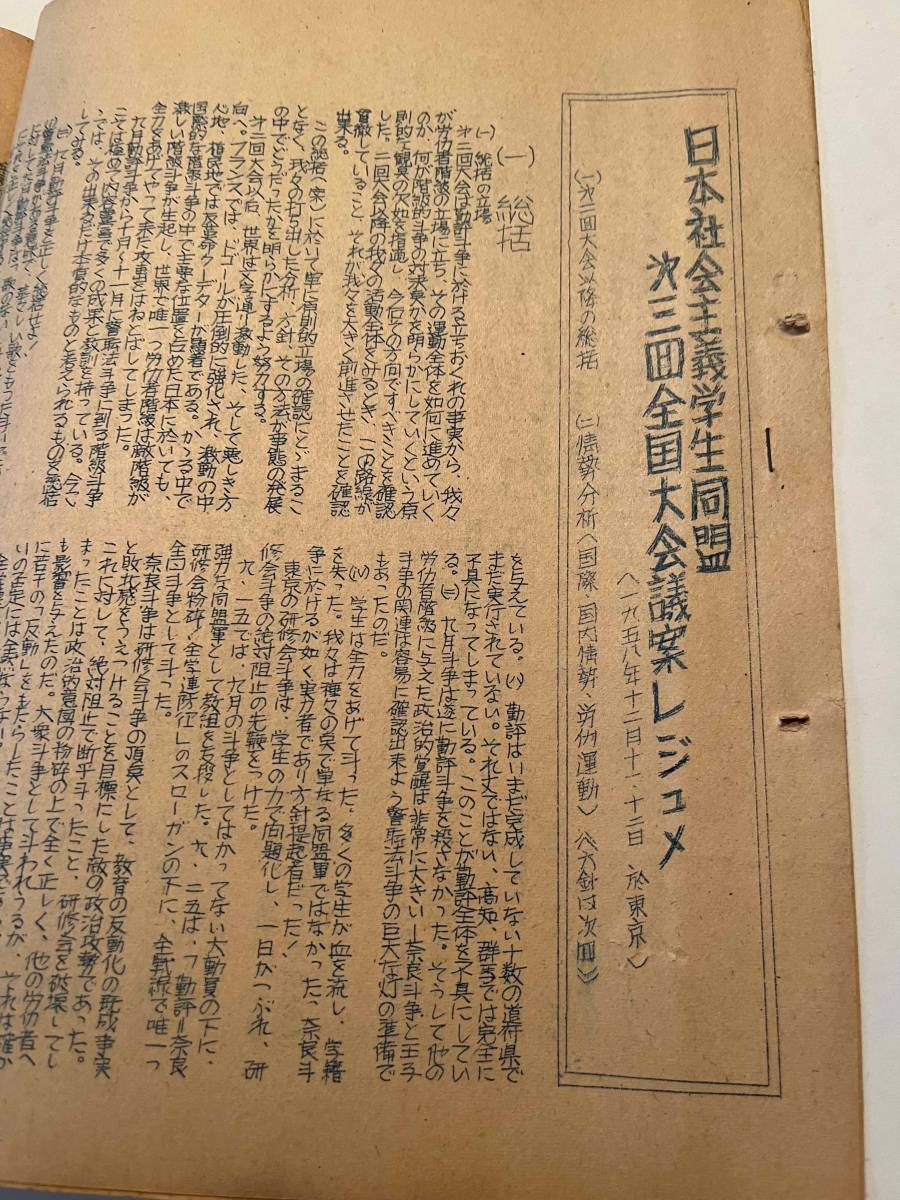 日本社会主義学生同盟
次三回全国大会議案レジュメ
〈一九五八年十二月十一・十二日 於東京〉
(一)次二回大会以降の総括 (二)情勢分析〈国際、国内情勢、労仂運動〉〈方針は次回〉
(一) 総括
(一) 総括の立場
次二回大会は勤評斗争に於ける立ちおくれの事実から、我々
が労仂者階級の立場に立ち、その運動全体を如何に進めていく
のか、何が階級的斗争の対決点かを明らかにしていくという原
則的な観点の欠如を指摘し、今后での方向ですべきことを確認
した。二回大会以降の我々の活動全体をみるとき、この路線が
貫徹していること、それが我々を大きく前進させたことを確認
出来る。
この総括〈案〉に於いて単に原則的立場の確認にとどまるこ
となく、我々の打ち出した分析、方針、その方法が事態の発展
の中でどうだったかを明らかにするよう努力する。
次二回大会以后、世界は文字通り激動した、そして悪しき方
向へ。フランスでは、ドゴールが圧倒的に強化され、激動の中
心地、植民地では反革命クーデターが顕著である。かゝる中で
国際的な階級斗争の中で主要な位置を占めた日本に於いても、
激しい階級斗争が生起し、世界で唯一つ労仂者階級は敵階級が
全力をあげてやって来た攻撃をはねとばしてしまった。
九月勤評斗争から十月〜十一月に警職法斗争に到る階級斗争
こそは極めて内容豊富で多くの成果と教訓を持っている。今こ
こでは、その出来るだけ本質的なものと考えられるものを総括
してみる。
(二) 九月勤評斗争を正しく総括せよ!
を与えている。(ハ) 勤評はいまだ完成していない十数の道府県で
まだ実行されていない。それ丈ではない、高知、群馬では完全に
不具になってしまっている。このことが勤評全体を不具にしてい
る。(ニ) 九月斗争は遂に勤評斗争を殺さなかった。そうして他の
労仂者階級に与えた政治的覚醒は非常に大きい—奈良斗争と王子
斗争の関連は容易に確認出来よう警職法斗争の巨大な灯の準備で
もあったのだ。
(ソ) 学生は全力をあげて斗った、多くの学生が血を流し、学籍
を失った。我々は種々の点で単なる同盟軍ではなかった、奈良斗
争に於けるが如く実力者であり方針提起者だった!
東京の研修会斗争は、学生の力で問題化し、一日かつぶれ、研
修会斗争の絶対阻止の先鞭をつけた。
九、一五では、九月の斗争としてはかってない大動員の下に、
強力な同盟軍として教組を支援した。九、二五は、「勤評=奈良
研修会粉砕!全学連防征」のスローガンの下に、全戦線で唯一つ
全国斗争として斗った。
奈良斗争は研修会斗争の頂点として、教育の反動化の既成事実
と敗北感をうえつけることを目標にした敵の政治攻勢であった。
これに対して、絶対阻止で断乎斗ったこと、研修会を破壊してし
まったことは政治的意図の粉砕の上で全く正しく、他の労仂者へ
も影響を与えたのだ。大衆斗争として斗われうるが、それは確か
に若干の「反動」をもたらしたことは事実である